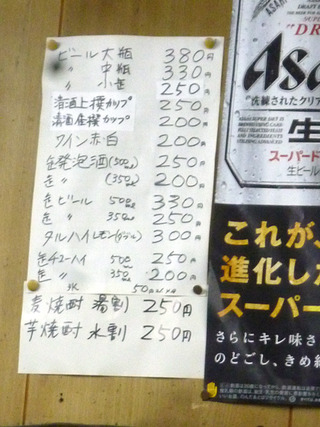 ビール大瓶 380円
〃 中瓶 330円
〃 小瓶 250円
清酒上撰カップ 250円
清酒佳撰カップ 200円
ワイン赤白 200円
缶発泡酒(500ml) 250円
缶 〃 (350ml) 200円
缶ビール 500ml 330円
缶 〃 350ml 250円
タルハイレモン 300円
缶チューハイ 500ml 250円
缶 〃 350ml 200円
氷 50円
麦焼酎 湯割 250円
芋焼酎 水割 250円
ASAHI
"DR
Asa
"洗練されたクリア
生
スーパード
生ビール
これが、
進化した
スーパー
さらにキレ味さ
のどごし、きめ細